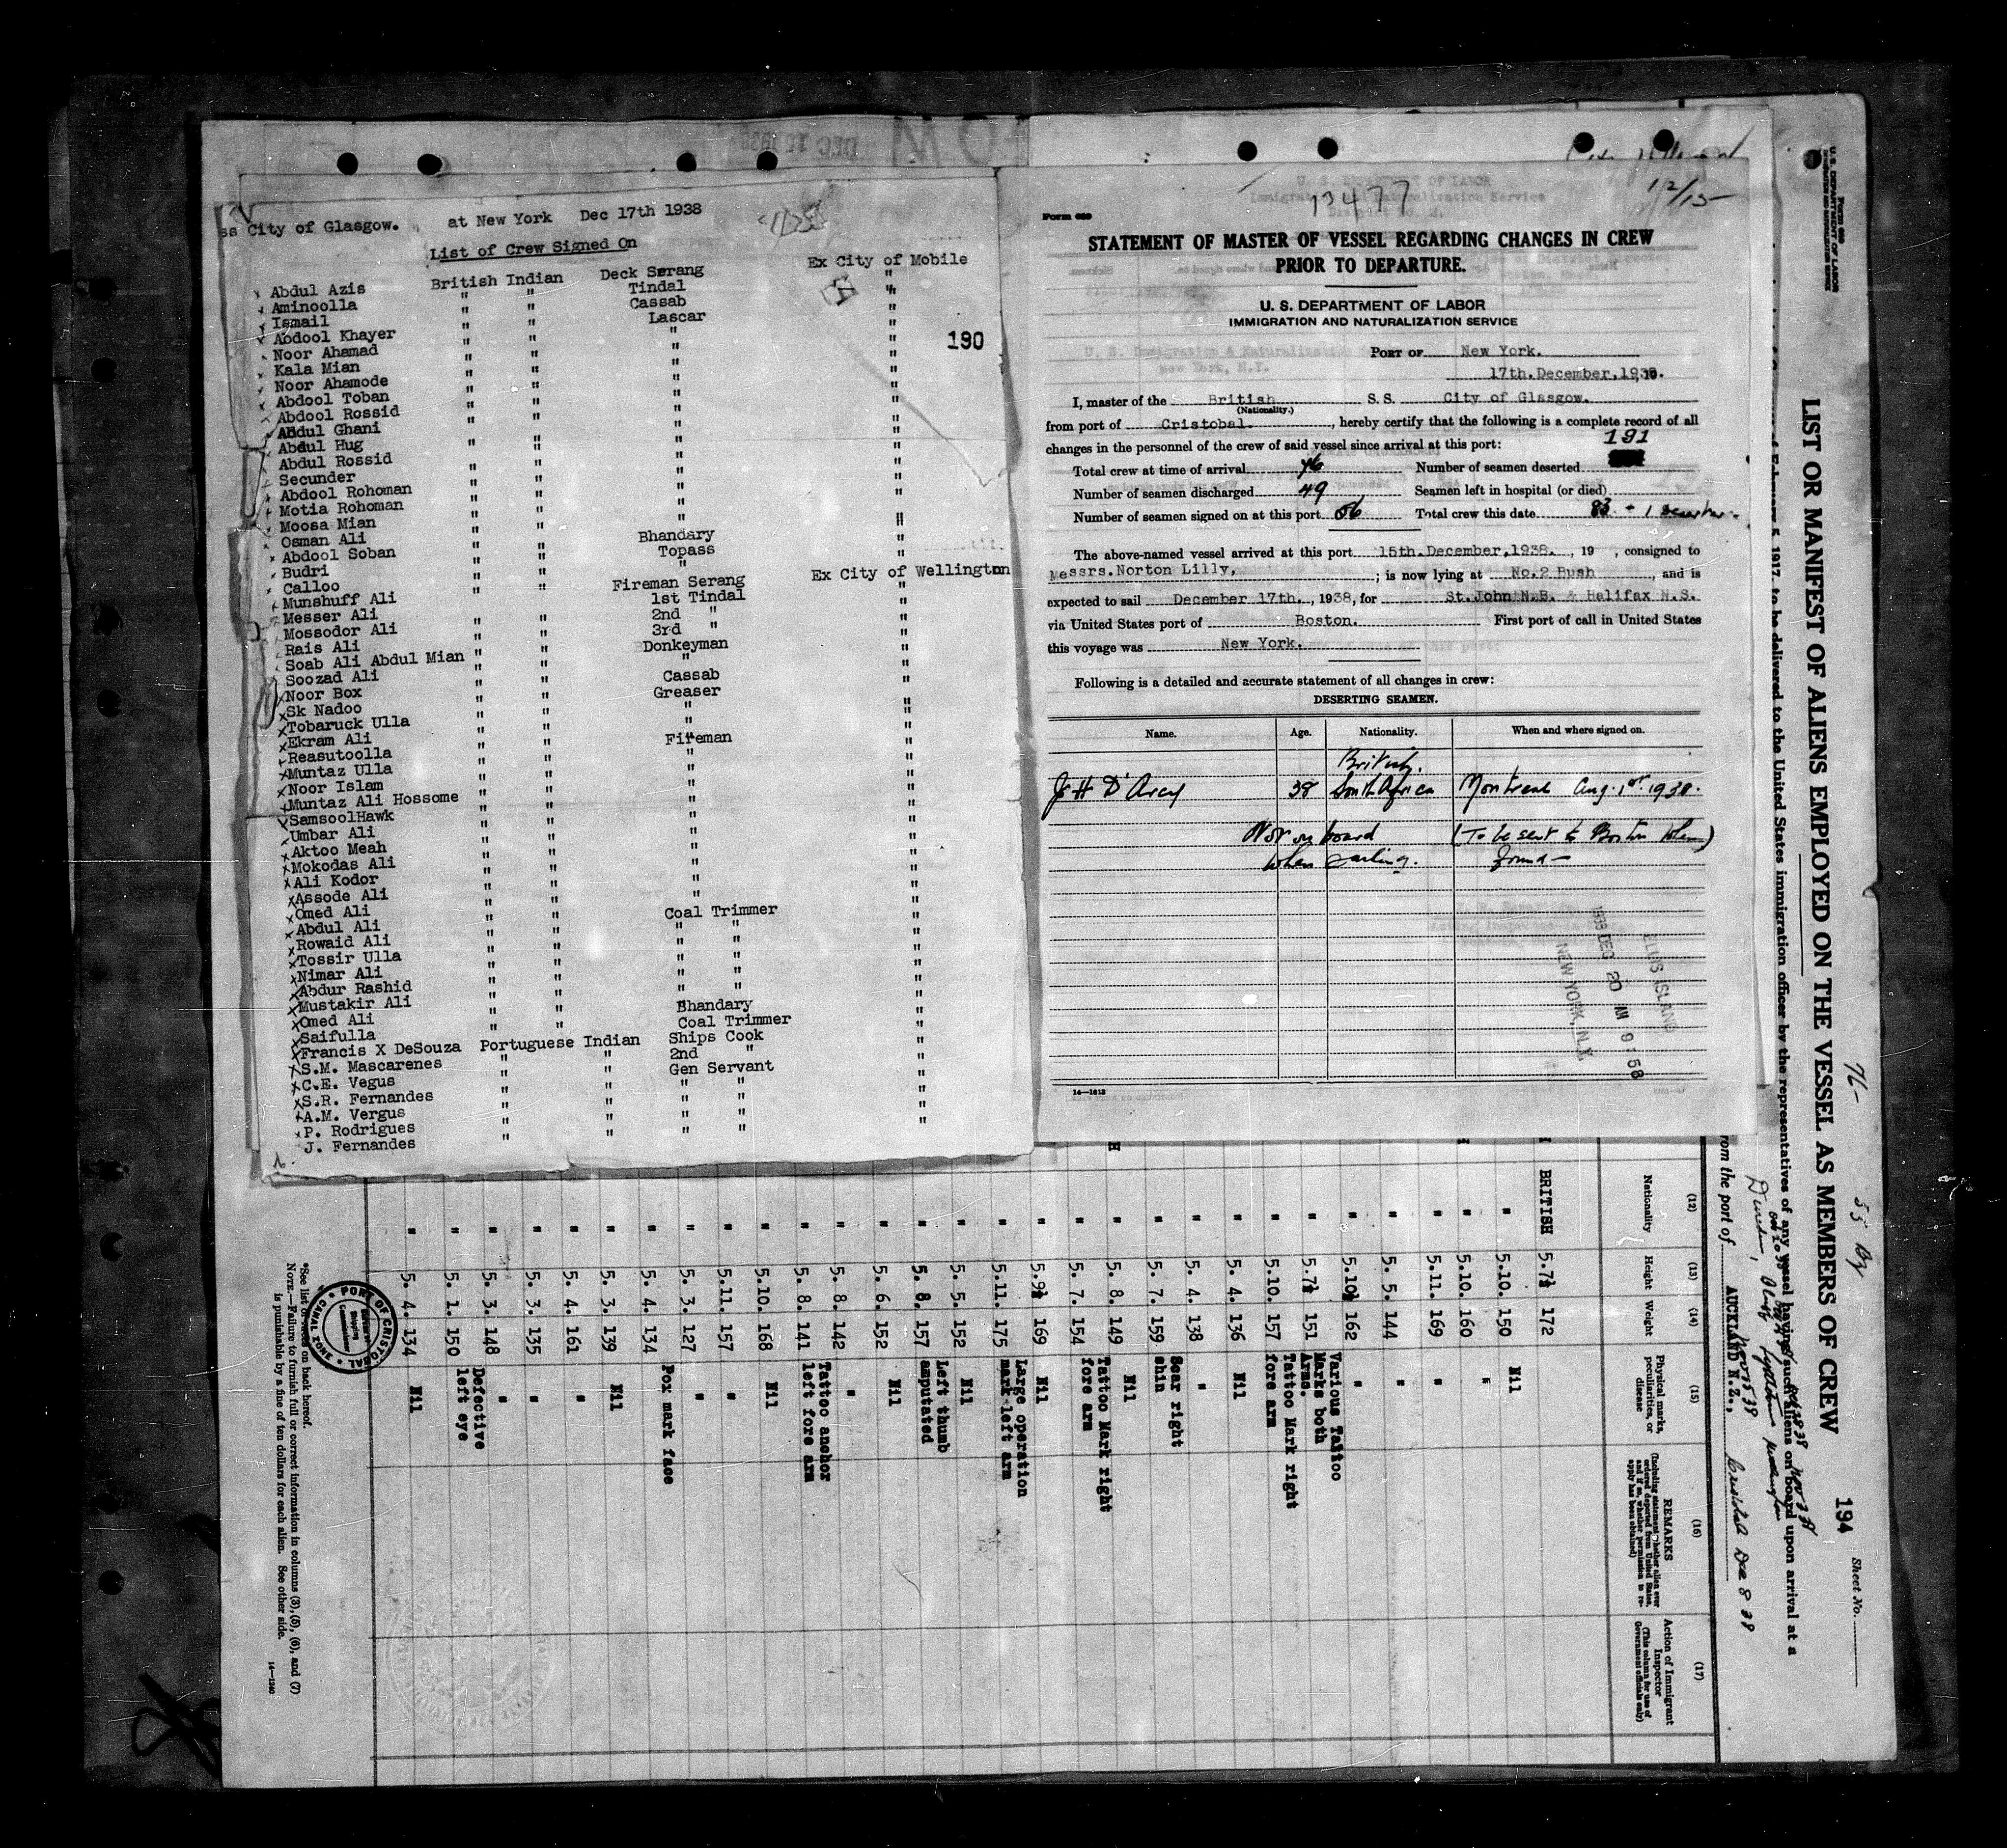 ss City of Glasgow. at New York Dec 17th 1938
List of Crew Signed On
Abdul Azis British Indian Deck Serang Ex City of Mobile
Aminoolla " " Tindal "
Ismail " " Cassab "
Abdool Khayer " " Lascar "
Noor Ahamad " " " "
Kala Mian " " " "
Noor Ahamode " " " "
Abdool Toban " " " "
Abdool Rossid " " " "
Abdul Ghani " " " "
Abdul Hug " " " "
Abdul Rossid " " " "
Secunder " " " "
Abdool Rohoman " " " "
Motia Rohoman " " " "
Moosa Mian " " " "
Osman Ali " " Bhandary "
Abdool Soban " " Topass "
Budri " " " "
Calloo
Munshuff Ali " " Fireman Serang Ex City of Wellington
Messer Ali " " 1st Tindal "
Mossodor Ali " " 2nd " "
Rais Ali " " 3rd " "
Soab Ali Abdul Mian " " Donkeyman "
Soozad Ali " " " "
Noor Box " " Cassab "
Sk Nadoo " " Greaser "
Tobaruck Ulla " " " "
Ekram Ali " " " "
Reasutoolla " " Fireman "
Muntaz Ulla " " " "
Noor Islam " " " "
Muntaz Ali Hossome " " " "
SamsoolHawk " " " "
Umbar Ali " " " "
Aktoo Meah " " " "
Mokodas Ali " " " "
Ali Kodor " " " "
Assode Ali " " " "
Omed Ali " " Coal Trimmer "
Abdul Ali " " " " "
Rowaid Ali " " " " "
Tossir Ulla " " " " "
Nimar Ali " " " " "
Abdur Rashid " " " " "
Mustakir Ali " " Bhandary "
Omed Ali " " Coal Trimmer "
Saifulla
Francis X DeSouza Portuguese Indian Ships Cook "
S.M. Mascarenes " " 2nd " "
C.E. Vegus " " Gen Servant "
S.R. Fernandes " " " " "
A.M. Vergus " " " " "
P. Rodrigues " " " " "
J. Fernandes " " " " "
190
13477
12/15
Form 689
STATEMENT OF MASTER OF VESSEL REGARDING CHANGES IN CREW
PRIOR TO DEPARTURE.
U. S. DEPARTMENT OF LABOR
IMMIGRATION AND NATURALIZATION SERVICE
PORT OF New York.
17th.December,1938.
I, master of the British S. S. City of Glasgow.
(Nationality.)
from port of Cristobal. , hereby certify that the following is a complete record of all
changes in the personnel of the crew of said vessel since arrival at this port:
191
Total crew at time of arrival 76 Number of seamen deserted
Number of seamen discharged 49 Seamen left in hospital (or died)
Number of seamen signed on at this port 56 Total crew this date 83 - 1 deserter -
The above-named vessel arrived at this port 15th.December,1938. , 19 , consigned to
Messrs.Norton Lilly, ; is now lying at No.2 Bush , and is
expected to sail December 17th. , 1938, for St.John N.B. & Halifax N.S.
via United States port of Boston. First port of call in United States
this voyage was New York.
Following is a detailed and accurate statement of all changes in crew:
DESERTING SEAMEN.
Name. Age. Nationality. When and where signed on.
British.
J. H D'Arcy 38 South Africa Montreal Aug. 1st. 1938.
Not on board (To be sent to Boston when)
when sailing. found -
ELLIS ISLAND
1938 DEC 20 AM 9:58
NEW YORK, N.Y.
14—1613
Form 680
U. S. DEPARTMENT OF LABOR
194
Sheet No.
76-
LIST OR MANIFEST OF ALIENS EMPLOYED ON THE VESSEL AS MEMBERS OF CREW
February 5, 1917, to be delivered to the United States immigration officer by the representatives of any vessel having such aliens on board upon arrival at a
from the port of AUCKLAND N.Z., Cristobal Dec 8 38
(12) (13) (14) (15) (16) (17)
Nationality
Height
Weight
Physical marks, peculiarities, or disease
REMARKS
(Including statement whether alien ever ordered deported from United States, and if so, whether permission to reapply has been obtained)
Action of Immigrant Inspector
(This column for use of Government officials only)
BRITISH 5.7½ 172
" 5.10. 150 Nil
" 5.10. 160 "
" 5.11. 169 "
" 5. 5. 144 "
" 5.10½ 162 "
" 5.7½ 151 Various Tattoo Marks both Arms.
" 5.10. 157 Tattoo Mark right fore arm
" 5. 4. 136 Nil
" 5. 4. 138 "
" 5. 7. 159 Scar right shin
" 5. 8. 149 Nil
" 5. 7. 154 Tattoo Mark right fore arm
" 5.9½ 169 Nil
" 5.11. 175 Large operation mark left arm
" 5. 5. 152 Nil
" 5. 8. 157 Left thumb amputated
" 5. 6. 152 Nil
" 5. 8. 142 "
" 5. 8. 141 Tattoo anchor left fore arm
" 5.10. 168 Nil
" 5.11. 157 "
" 5. 3. 127 "
" 5. 4. 134 Pox mark face
" 5. 3. 139 Nil
" 5. 4. 161 "
" 5. 3. 135 "
" 5. 3. 148 "
" 5. 1. 150 Defective left eye
" 5. 4. 134 Nil
PORT OF CRISTOBAL
CANAL ZONE
*See list of races on back hereof.
NOTE.—Failure to furnish full or correct information in columns (3), (5), (6), and (7)
is punishable by a fine of ten dollars for each alien. See other side.
14—1240